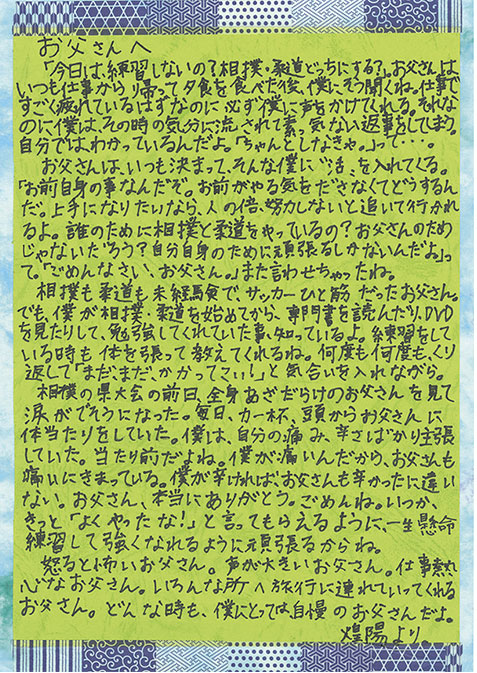 お父さんへ
「今日は、練習しないの？相撲・柔道どっちにする？」。お父さんは、
いつも仕事から帰って夕食を食べた後、僕にそう聞くね。仕事で
すごく疲れているはずなのに必ず僕に声をかけてくれる。それな
のに僕は、その時の気分に流されて素っ気ない返事をしてしまう。
自分ではわかっているんだよ。「ちゃんとしなきゃ。」って・・・。
お父さんは、いつも決まって、そんな僕に“活„を入れてくる。
「お前自身の事なんだぞ。お前がやる気をださなくてどうするん
だ。上手になりたいなら、人の倍、努力しないと追いて行かれ
るよ。誰のために相撲と柔道をやっているの？お父さんのため
じゃないだろう？自分自身のために頑張るしかないんだよ。」っ
て。「ごめんなさい、お父さん。」また言わせちゃったね。
相撲も柔道も未経験で、サッカーひと筋だったお父さん。
でも、僕が相撲・柔道を始めてから、専門書を読んだり、DVD
を見たりして、勉強してくれていた事、知っているよ。練習をして
いる時も体を張って教えてくれるね。何度も何度も、くり
返して「まだまだ、かかってこい！」と気合いを入れながら。
相撲の県大会の前日、全身あざだらけのお父さんを見て
涙がでそうになった。毎日、力一杯、頭からお父さんに
体当たりをしていた。僕は、自分の痛み、辛さばかり主張
していた。当たり前だよね。僕が痛いんだから、お父さんも
痛いにきまっている。僕が辛ければ、お父さんも辛かったに違い
ない。お父さん、本当にありがとう。ごめんね。いつか、
きっと「よくやったな！」と言ってもらえるように、一生懸命
練習して強くなれるように頑張るからね。
怒ると怖いお父さん。声が大きいお父さん。仕事熱
心なお父さん。いろんな所へ旅行に連れていってくれる
お父さん。どんな時も、僕にとっては自慢のお父さんだよ。
煌陽より。